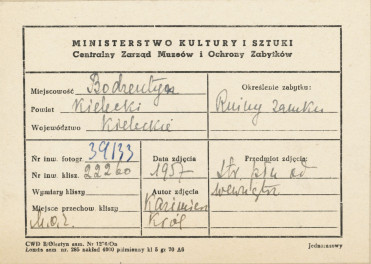 MINISTERSTWO KULTURY I SZTUKI
Centralny Zarząd Muzeów i Ochrony Zabytków
Miejscowość Bodzentyn
Powiat Kielecki
Województwo Kieleckie
Określenie zabytku:
Ruiny zamku
Nr inw. fotogr 39133
Nr inw. klisz. 22260
Wymiary kliszy
Miejsce przechow. kliszy
M.O.Z.
Data zdjęcia
1957
Autor zdjęcia
Kazimierz
Król
Przedmiot zdjęcia:
Str. płn od
wewnątrz
CWD R/Olsztyn zam. Nr
Łomża zam nr. 295 nakład 4000 piśmienny kl 5 gr 70 A6
Jednorazowy